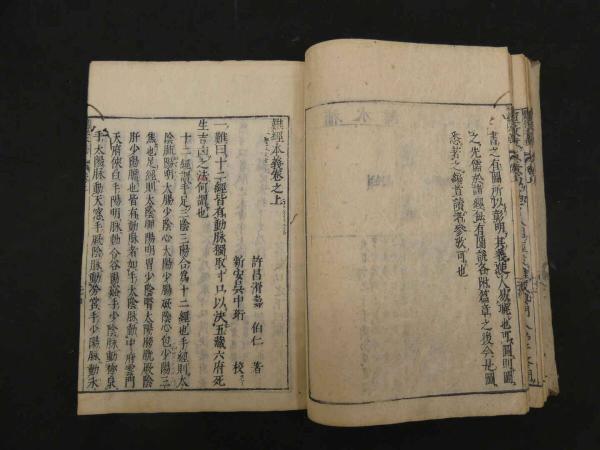 書之有圖所以彰明其義使人易曉也可圖則圖
之先儒於諸經無有圖說各附篇章之後今是圖
悉著之編首讀者參攷可也
難經本義卷之上
許昌滑壽 伯仁 著
新安吳中珩 校
一難曰十二經皆有動脉獨取寸口以決五藏六府死
生吉凶之法何謂也
十二經謂手足三陰三陽合為十二經也手經則太
陰肺陽明大腸少陰心太陽小腸厥陰心包少陽三
焦也足經則太陰脾陽明胃少陰腎太陽膀胱厥陰
肝少陽膽也皆有動脉者如手太陰脉動中府雲門
天府俠白手陽明脉動合谷陽谿手少陰脉動極泉
手太陽脉動天窓手厥陰脉動勞宮手少陽脉動禾